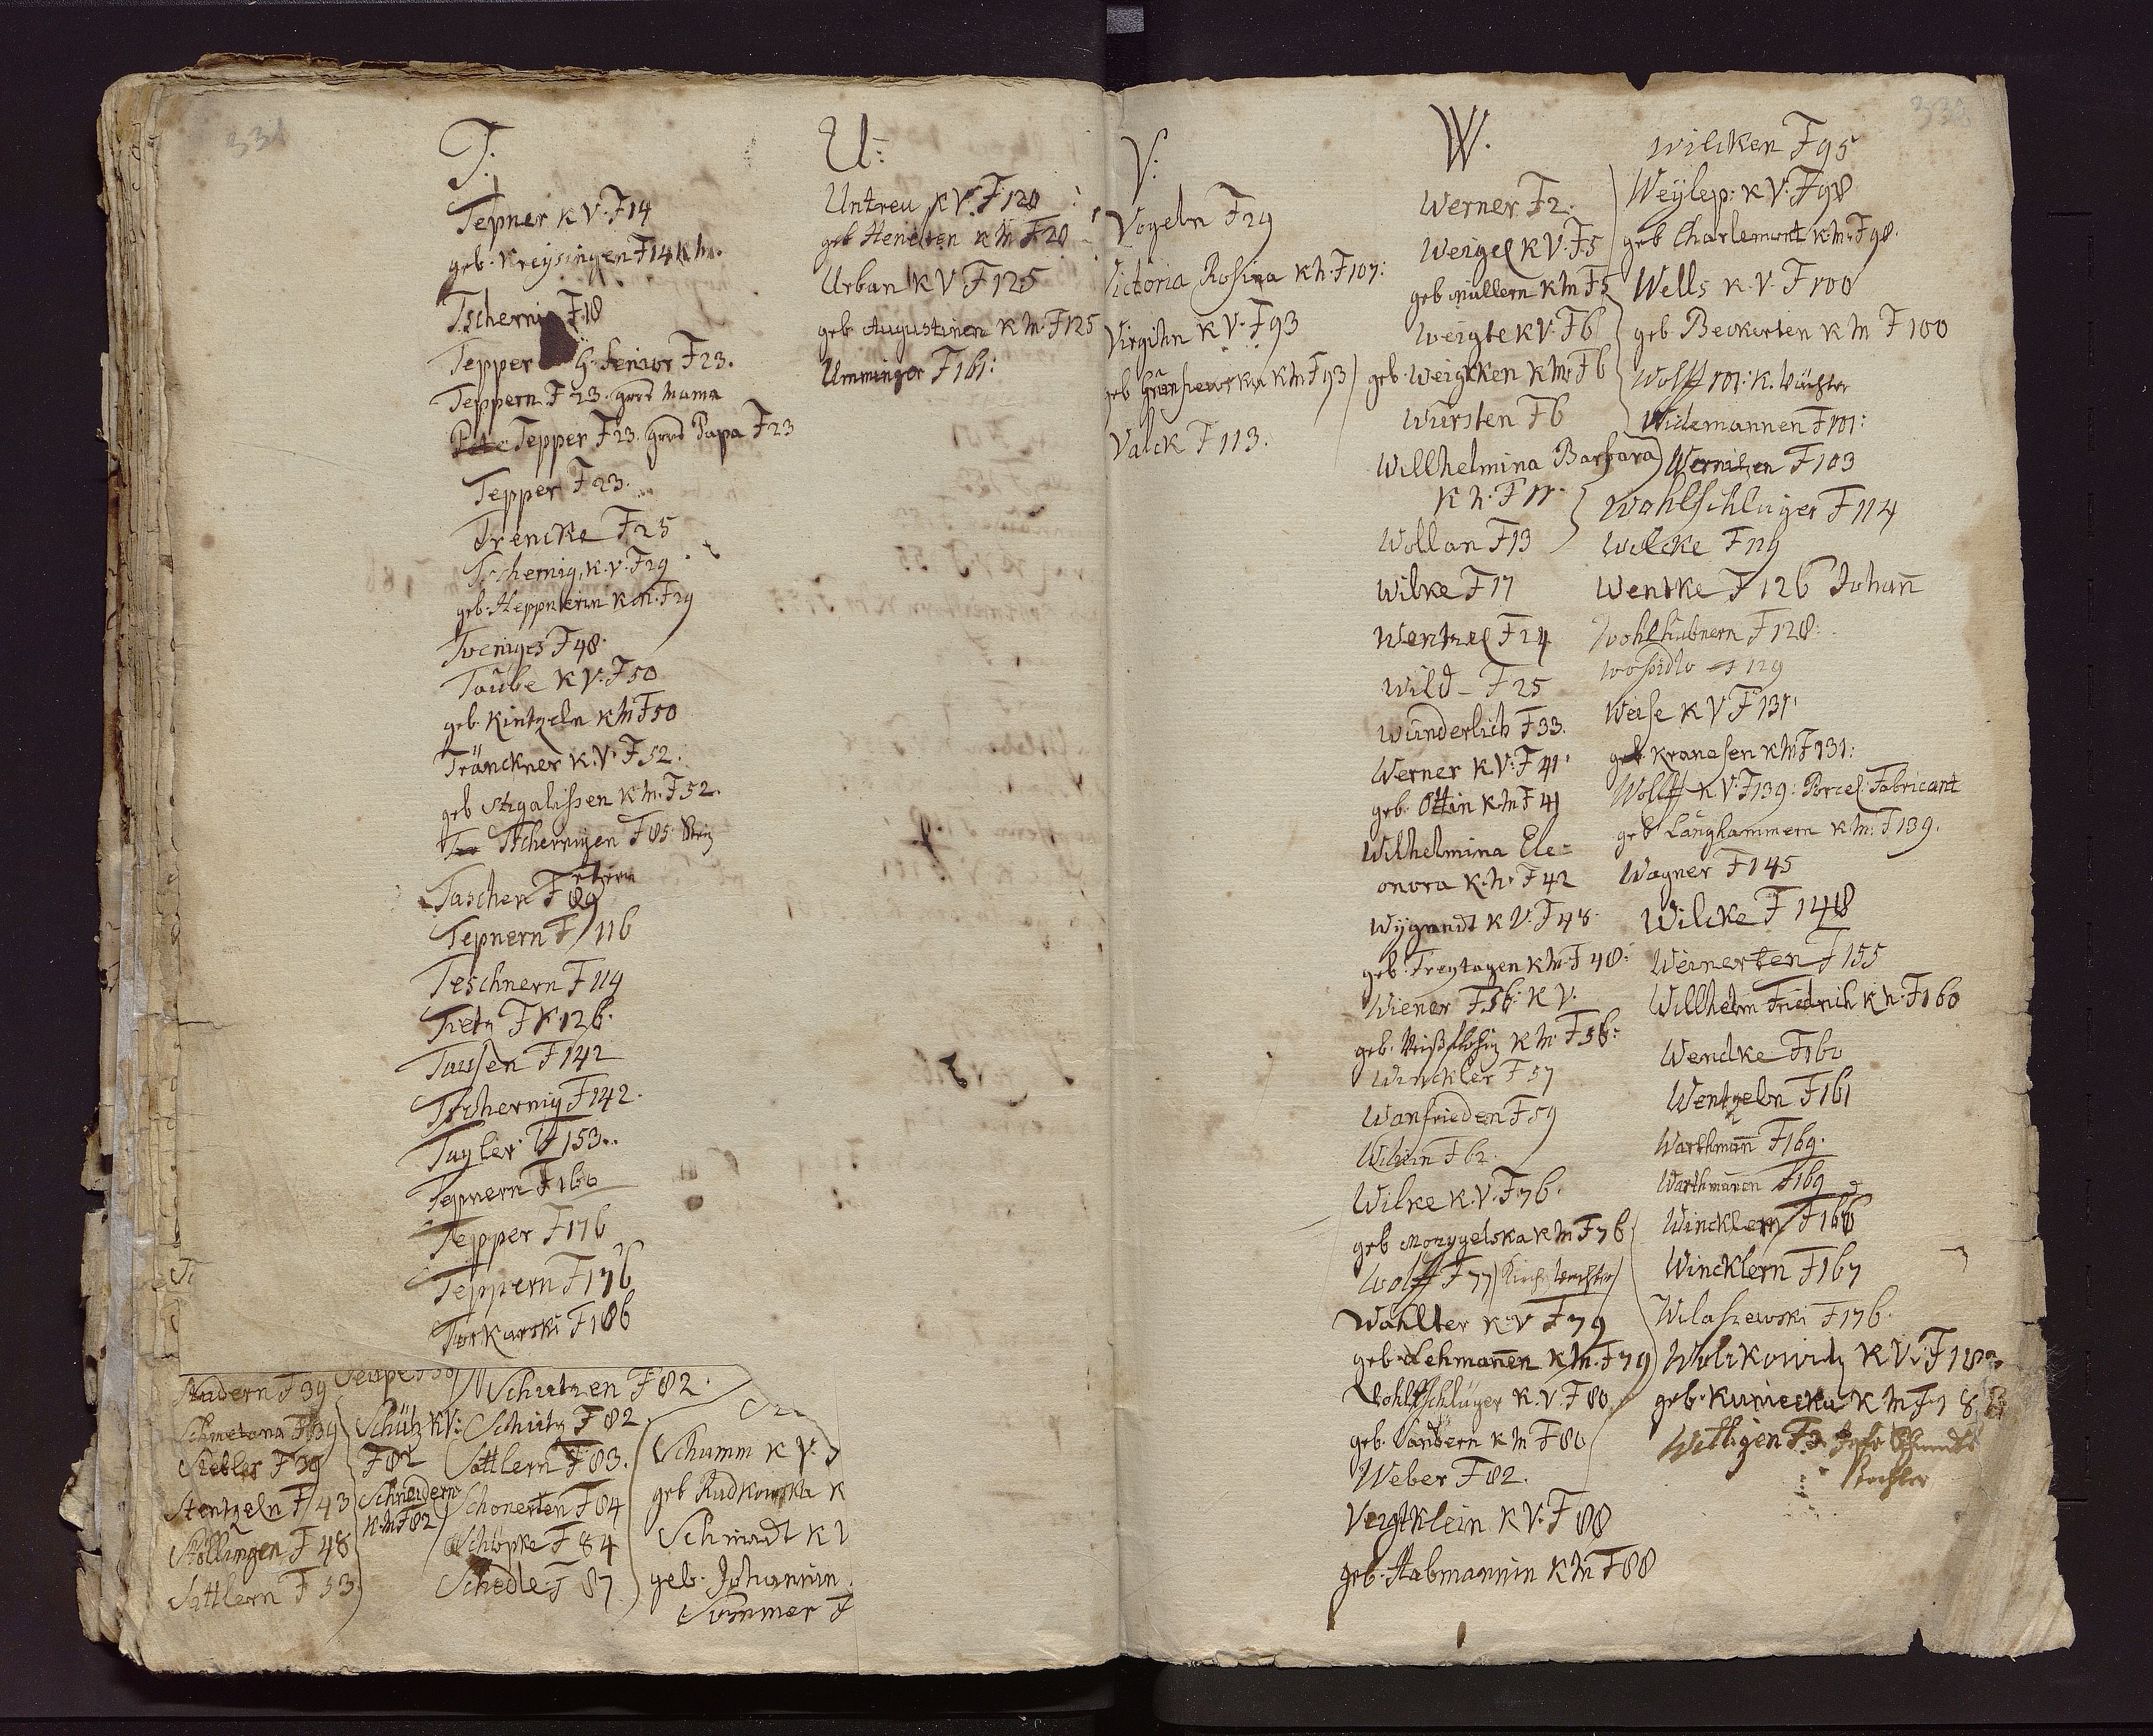 331
T:
Tepner K V. F 14
geb. Kreysingen F 14 K M.
Tscherni F 18
Tepper H. Senior F 23.
Teppern F 23. gros Mama
Tepper F 23. gros Papa F 23
Tepper F 23.
Trencke F 25
Tschernig, K. V. F 29
geb. Heppnerin K M. F 29
Tveniges F 48.
Taube K V. F 50
geb. Kintzeln K M F 50
Tränckner K. V. F 52.
geb K M. F 52.
Tschernigen F 85.
Tascher F 89
Tepnern F 116
Teschnern F 119
Tietz F K 126.
Taussen F 142
Tschernig F 142.
Tayler F 153..
Tepnern F 160
Tepper F 176
Teppern F 176
Torkarski F 186
U:
Untreu K V. F 120
geb K M F 20
Urban K V F 125
geb. Augustinen K M. F 125
Umminger F 161:
Studern F 39
Schmetana F 39
Siebler F 39
Stentzeln F 43
Stöllingen F 48
Sattlern F 53
Schütz K V:
F 82
Schneidern
K M F 82
Schutzen F 82.
Schutz F 82
Sattlern F 83.
Schonerten F 84
Schöpke F 84
Schedle F 87
Schumm K V.
geb Rudkowska K
Schmidt K V
geb. Johannin
Sommer F
V:
Vogeln F 29
Victoria Rosina K h. F 107:
Virgihn K V. F 93
geb K M F 93
Valck F 113.
W.
Werner F 2.
Weigel K V. F 5
geb Müllern K M F 5
Weigte K V. F 6
geb. Weigtken K M. F 6
Wursten F 6
Willhelmina Barbara
K h. F 11.
Wollan F 13
Wilke F 17
Wentzel F 24
Wild F 25
Wunderlich F 33.
Werner K V. F 41.
geb. Ottin K M F 41
Wilhelmina Ele=
onora K. h. F 42
Wygandt K V. F 48.
geb. Freytagen K M. F 48:
Wiener F 56: K V.
geb. K M. F 56:
Winckler F 57
Wanfrieden F 59
F 62.
Wilke K. V. F 76.
geb K M F 76
Wolff F 77
Wahlter K V F 79
geb. Lehmanen K M. F 79
Wohlschläger K. V. F 80
geb. K M F 80
Weber F 82.
Veigtklein K V. F 88
geb. Habmannin K M F 88
Wilcken F 95
K V. F 98
geb Charlemont K M. F 98.
Wells K. V. F 100
geb Beckerten K M F 100
Wolff 101. K. Wächter
Widemannen F 101:
Wernitzen F 103
Wohlschläger F 114
Wilcke F 119
Wentke F 126 Johan
Wohlhübnern F 128:
Wosidlo F 129
Weise K V F 131.
geb. Kranesen K M F 131:
Wolff K V. F 139: Porcel. Fabricant
geb Langhammern K M. F 139.
Wagner F 145
Wilcke F 148
Weinerten F 155
Willhelm Friedrich K h. F 160
Wendke F 160
Wentzeln F 161
Warthman F 169.
Warthmanen F 169
Wincklern F 166
Wincklern F 167
Wilaszewski F 176.
Wolikowitz K V. F 18
geb. Kuniecka K M F 18
Wettigen F